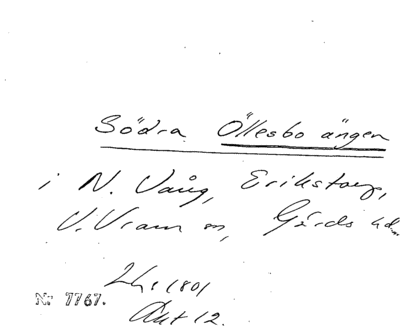 Södra Öllesbo ängen
i N. Vång, Erikstorp,
V. Vram m, Gärds hd
1801
Nr 7767.
Akt 12.